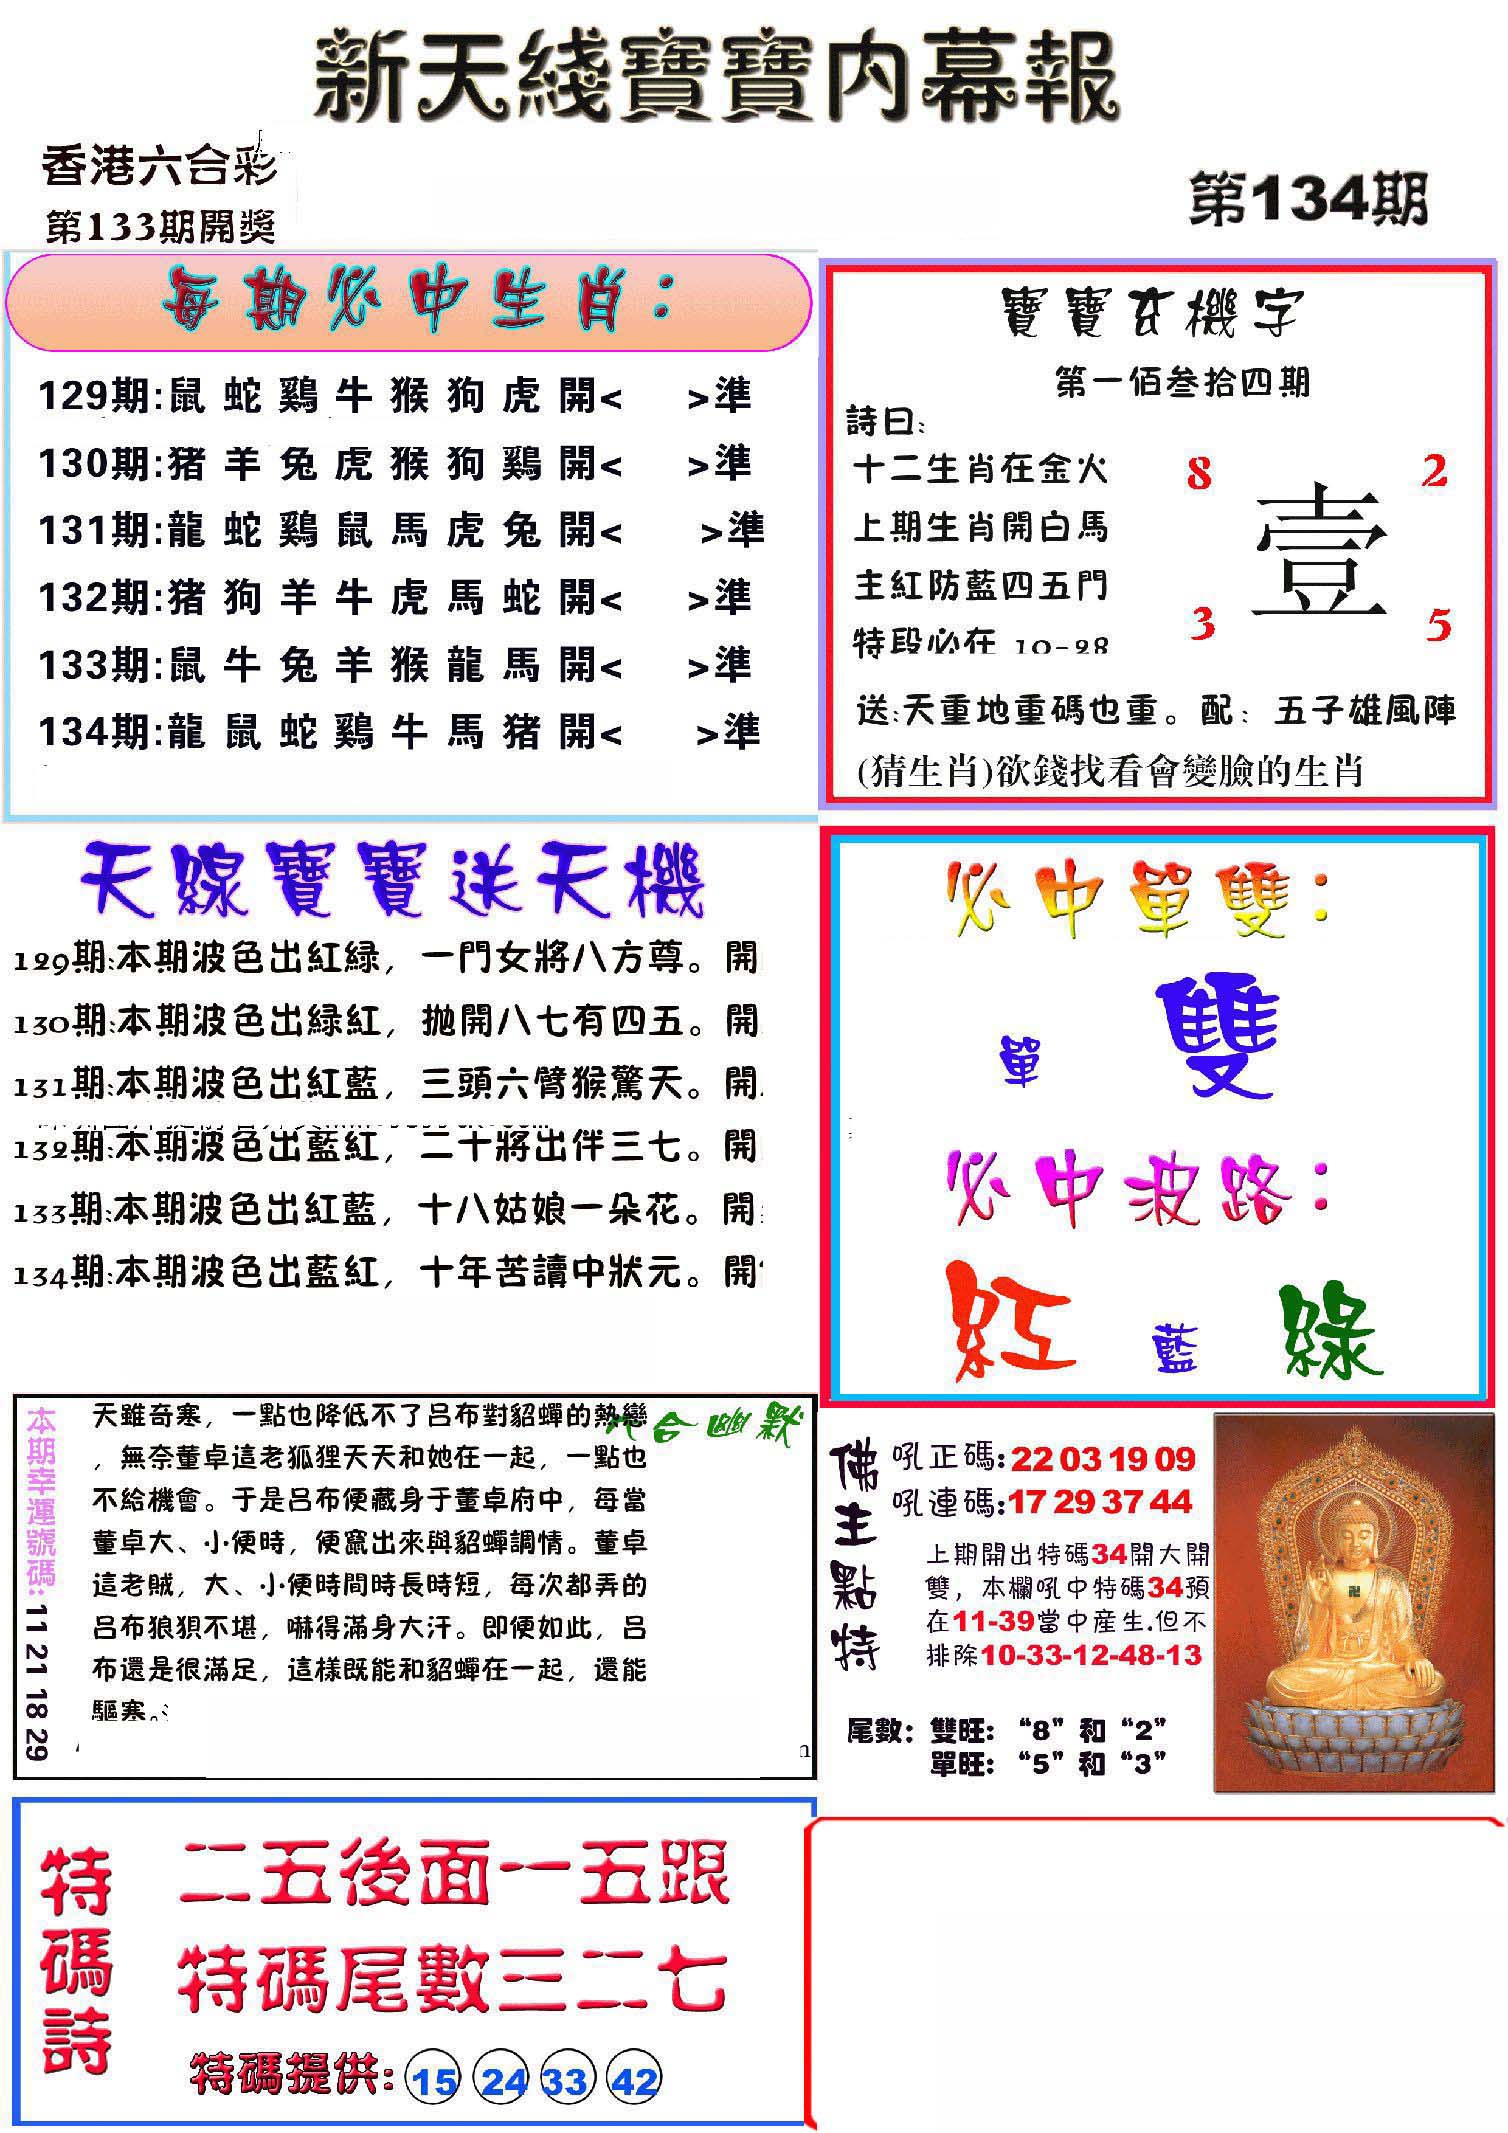 新天綫寶寶内幕報
香港六合彩
第133期開獎
第134期
每期必中生肖：
129期:鼠 蛇 鷄 牛 猴 狗 虎 開< >準
130期:猪 羊 兔 虎 猴 狗 鷄 開< >準
131期:龍 蛇 鷄 鼠 馬 虎 兔 開< >準
132期:猪 狗 羊 牛 虎 馬 蛇 開< >準
133期:鼠 牛 兔 羊 猴 龍 馬 開< >準
134期:龍 鼠 蛇 鷄 牛 馬 猪 開< >準
寶寶玄機字
第一佰叁拾四期
詩曰:
十二生肖在金火
上期生肖開白馬
主紅防藍四五門
特段必在 10-28
8 2
壹
3 5
送:天重地重碼也重。配：五子雄風陣
(猜生肖)欲錢找看會變臉的生肖
天線寶寶送天機
129期:本期波色出紅緑，一門女將八方尊。開
130期:本期波色出緑紅，抛開八七有四五。開
131期:本期波色出紅藍，三頭六臂猴驚天。開
132期:本期波色出藍紅，二十將出伴三七。開
133期:本期波色出紅藍，十八姑娘一朵花。開
134期:本期波色出藍紅，十年苦讀中狀元。開
必中單雙：
單 雙
必中波路：
紅 藍 綠
本期幸運號碼:11 21 18 29
六合幽默
天雖奇寒，一點也降低不了吕布對貂蟬的熱戀
，無奈董卓這老狐狸天天和她在一起，一點也
不給機會。于是吕布便藏身于董卓府中，每當
董卓大、小便時，便竄出來與貂蟬調情。董卓
這老賊，大、小便時間時長時短，每次都弄的
吕布狼狽不堪，嚇得滿身大汗。即便如此，吕
布還是很滿足，這樣既能和貂蟬在一起，還能
驅寒。
佛主點特
吼正碼:22 03 19 09
吼連碼:17 29 37 44
上期開出特碼34開大開
雙，本欄吼中特碼34預
在11-39當中産生.但不
排除10-33-12-48-13
尾數：雙旺：“8”和“2”
單旺：“5”和“3”
特碼詩
二五後面一五跟
特碼尾數三二七
特碼提供: 15 24 33 42